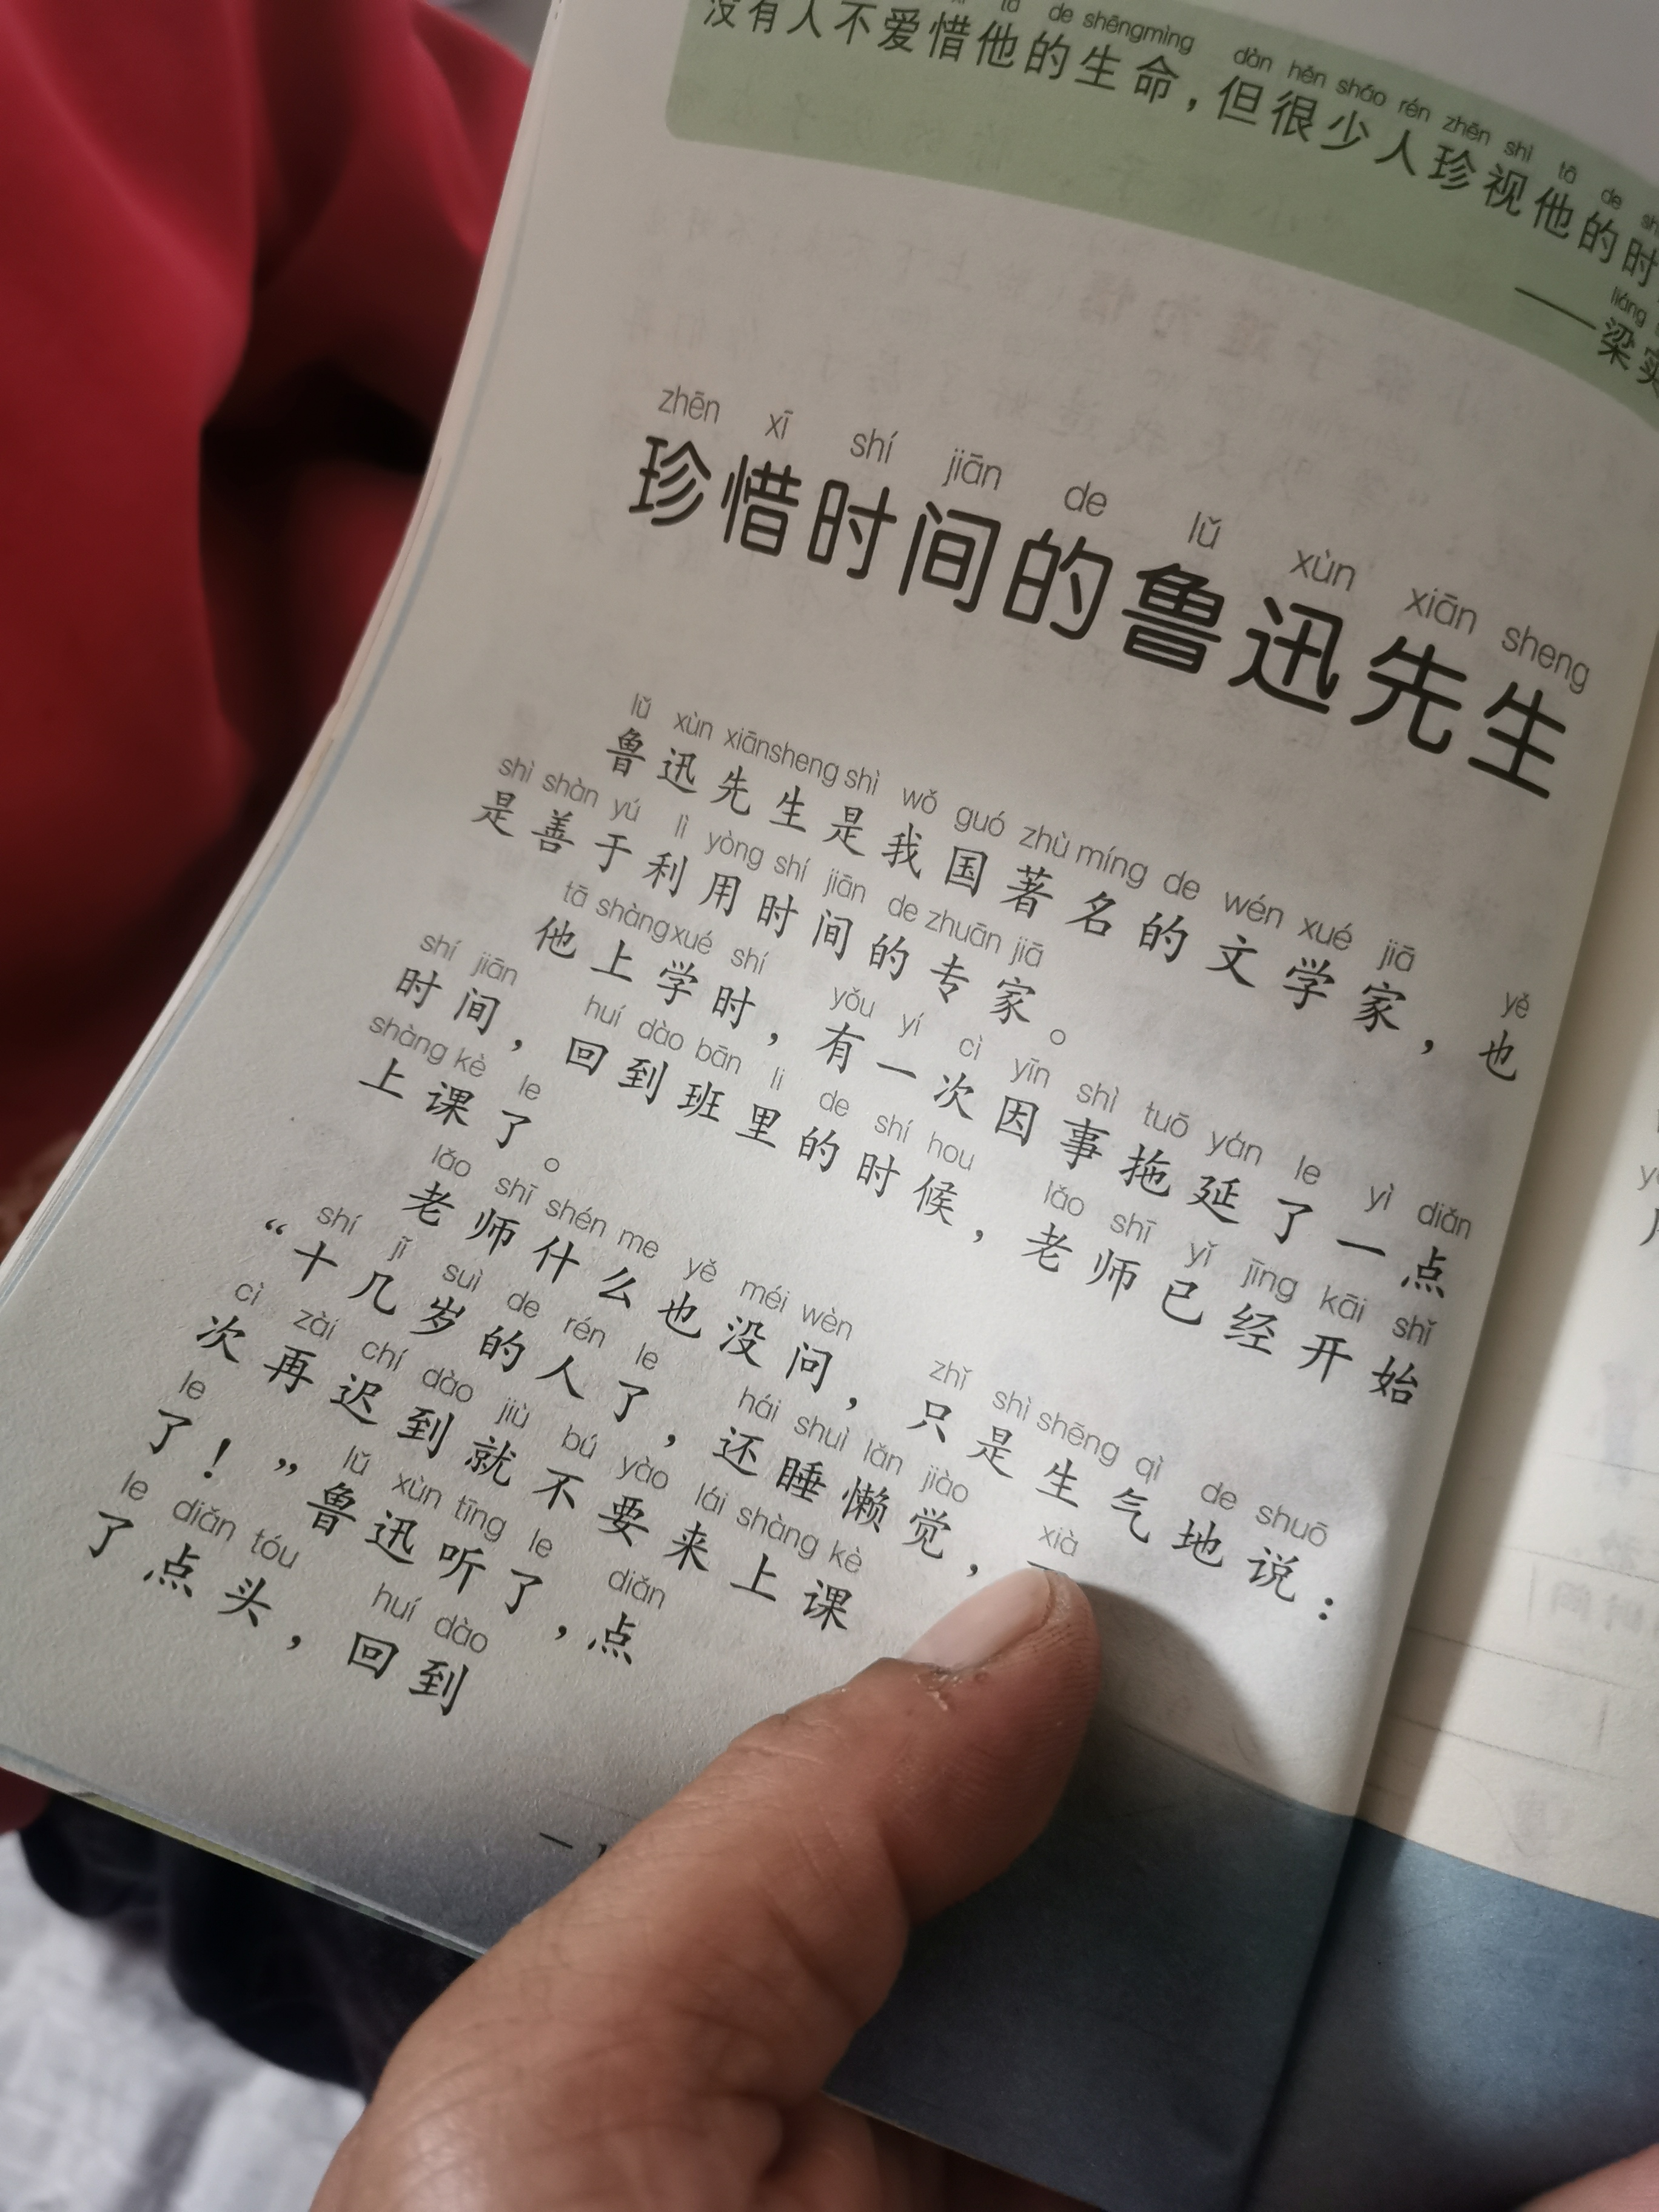 tā de shēngmìng dàn hěn shǎo rén zhēn shì tā de
没有人不爱惜他的生命，但很少人珍视他的时
liáng
——梁实
zhēn xī shí jiān de lǔ xùn xiān sheng
珍惜时间的鲁迅先生
lǔ xùn xiānsheng shì wǒ guó zhù míng de wén xué jiā yě
鲁迅先生是我国著名的文学家，也
shì shàn yú lì yòng shí jiān de zhuān jiā
是善于利用时间的专家。
tā shàngxué shí yǒu yí cì yīn shì tuō yán le yì diǎn
他上学时，有一次因事拖延了一点
shí jiān huí dào bān li de shí hou lǎo shī yǐ jīng kāi shǐ
时间，回到班里的时候，老师已经开始
shàng kè le
上课了。
lǎo shī shén me yě méi wèn zhǐ shì shēng qì de shuō
老师什么也没问，只是生气地说：
shí jǐ suì de rén le hái shuì lǎn jiào xià
“十几岁的人了，还睡懒觉，
cì zài chí dào jiù bú yào lái shàng kè
次再迟到就不要来上课
le lǔ xùn tīng le diǎn
了！”鲁迅听了，点
le diǎn tóu huí dào
了点头，回到